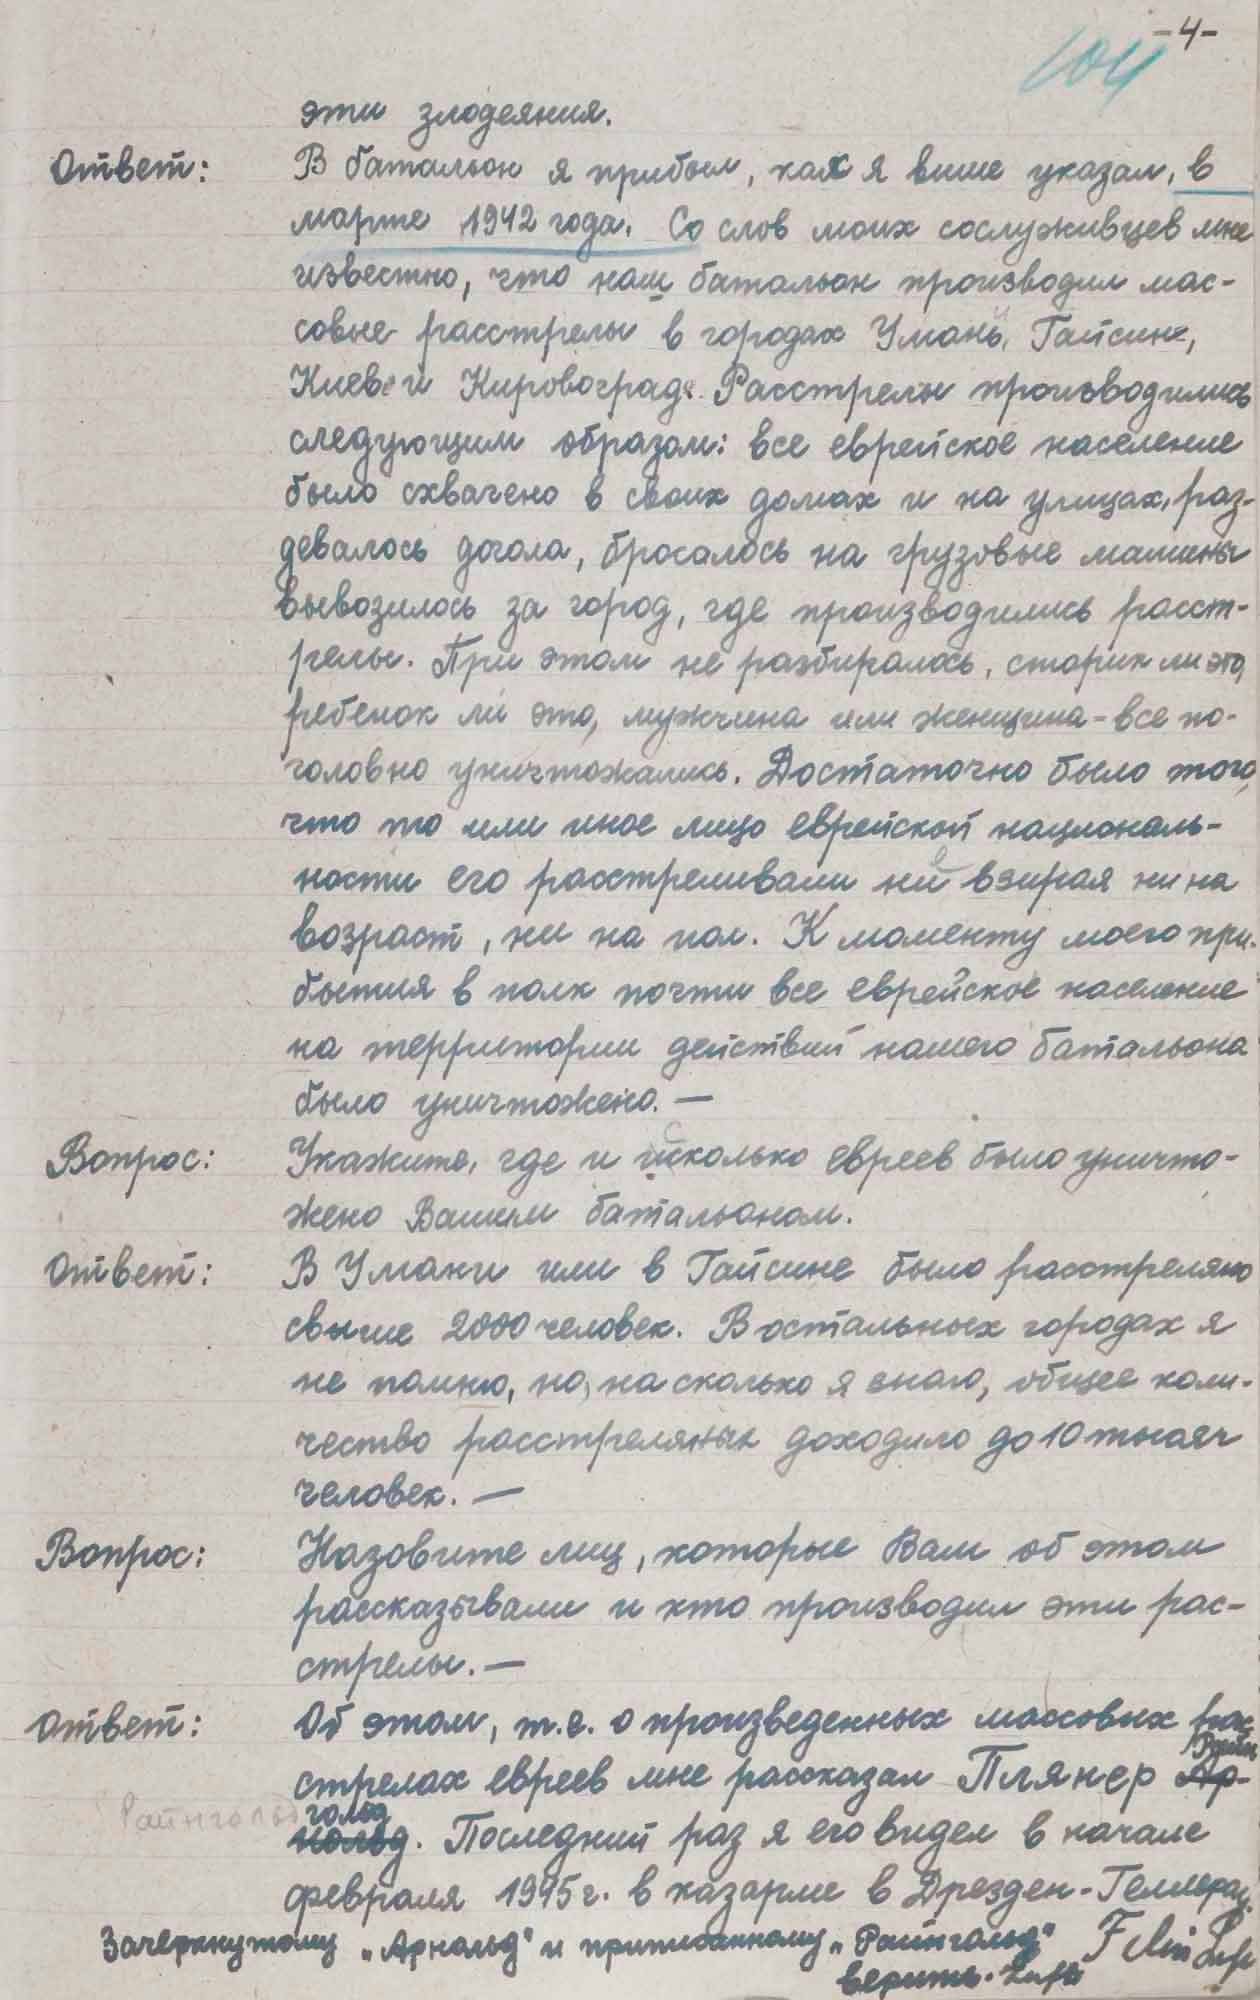 -4-
104
эти злодеяния.
Ответ: В батальон я прибыл, как я выше указал, в
марте 1942 года. Со слов моих сослуживцев мне
известно, что наш батальон производил мас-
совые расстрелы в городах Умань, Гайсине,
Киеве и Кировограде. Расстрелы производились
следующим образом: все еврейское население
было схвачено в своих домах и на улицах, раз-
девалось догола, бросалось на грузовые машины
вывозилось за город, где производились расст-
релы. При этом не разбиралось, старик ли это,
ребенок ли это, мужчина или женщина - все по-
головно уничтожались. Достаточно было того,
что то или иное лицо еврейской националь-
ности его расстреливали не взирая ни на
возраст, ни на пол. К моменту моего при-
бытия в полк почти все еврейское население
на территории действий нашего батальона
было уничтожено. —
Вопрос: Укажите, где и сколько евреев было уничто-
жено Вашим батальоном.
Ответ: В Умани или в Гайсине было расстреляно
свыше 2000 человек. В остальных городах я
не помню, но, на сколько я знаю, общее коли-
чество расстреляных доходило до 10 тысяч
человек. —
Вопрос: Назовите лиц, которые Вам об этом
рассказывали и кто производил эти рас-
стрелы. —
Ответ: Об этом, т.е. о произведенных массовых рас-
Райн
стрелах евреев мне рассказал Плянер Ар-
Райнгольд гольд
нольд. Последний раз я его видел в начале
февраля 1945 г. в казарме в Дрезден-Геллерау.
Зачеркнутому „Арнольд" и приписанному „Райнгольд"
верить.